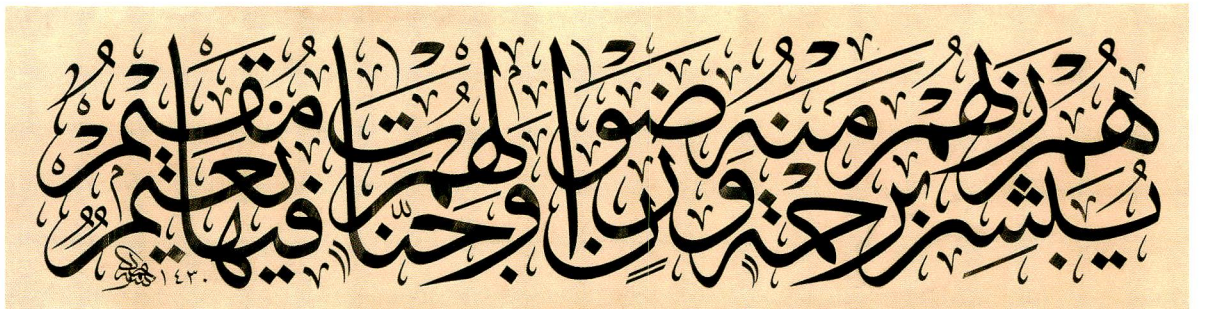 يُبَشِّرُهُمْ رَبُّهُمْ بِرَحْمَةٍ مِنْهُ وَرِضْوَانٍ وَجَنَّاتٍ لَهُمْ فِيهَا نَعِيمٌ مُقِيمٌ
١٤٣٠